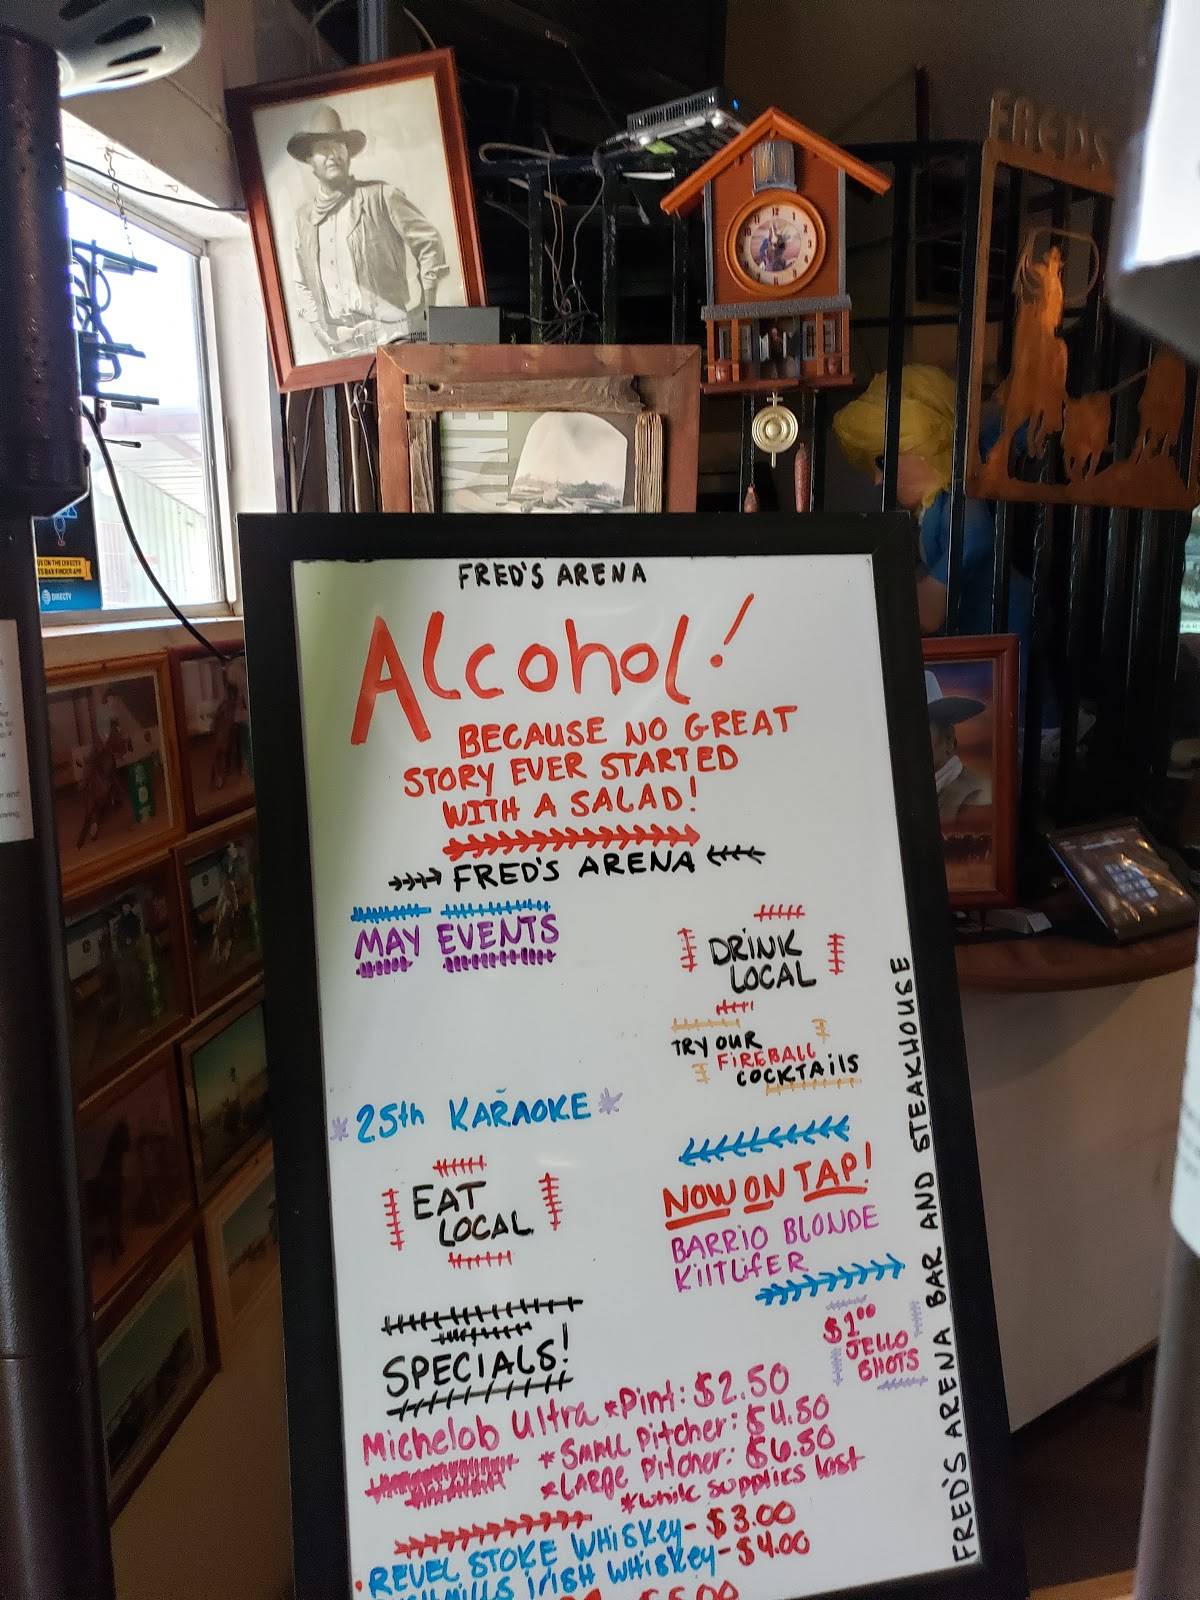 FRED'S
YNE
US ON THE DIRECTV
DIRECTV
FRED'S ARENA
Alcohol!
BECAUSE NO GREAT
STORY EVER STARTED
WITH A SALAD!
FRED'S ARENA
MAY EVENTS
*25th KARAOKE*
EAT
LOCAL
DRINK
LOCAL
TRY OUR
FIREBALL
COCKTAILS
NOW ON TAP!
BARRIO BLONDE
KILTLIFTER
$1.00
JELLO
SHOTS
SPECIALS!
Michelob Ultra *Pint: $2.50
*Small Pitcher: $4.50
*Large Pitcher: $6.50
*while supplies last
• REVEL STOKE WHISKEY- $3.00
IRISH WHISKEY- $4.00
$5.00
FRED'S ARENA BAR AND STEAKHOUSE